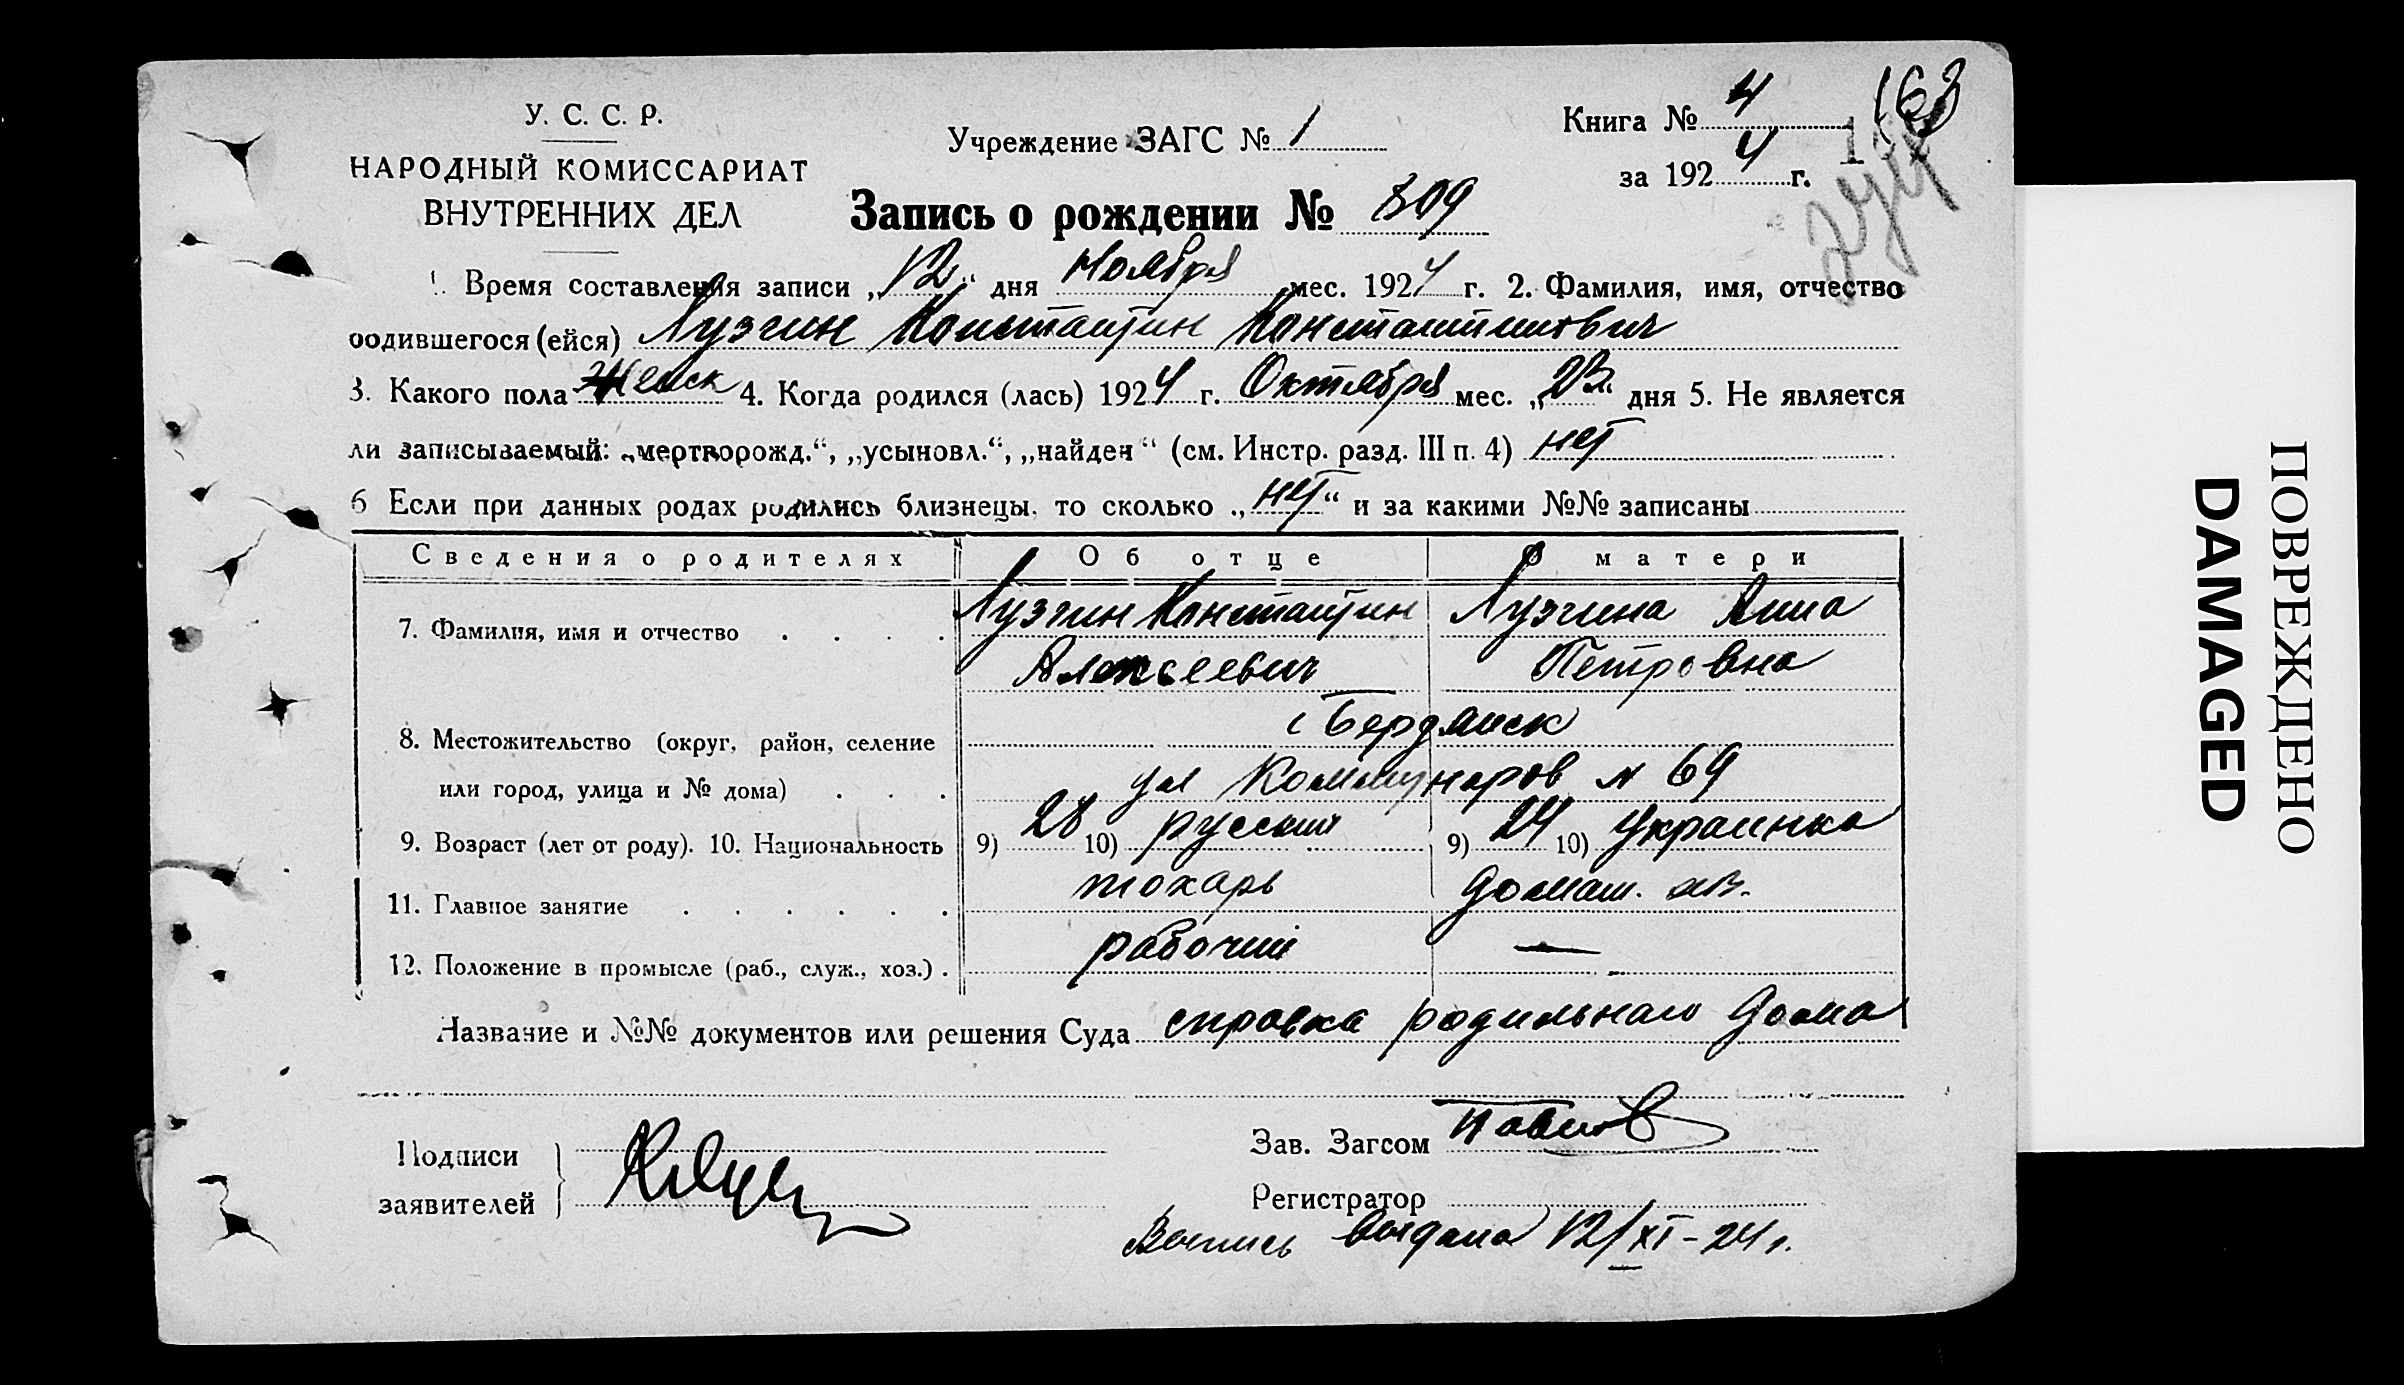 У. С. С. Р.
НАРОДНЫЙ КОМИССАРИАТ
ВНУТРЕННИХ ДЕЛ
Учреждение ЗАГС № 1
Книга № 4
163
за 1924 г.
Запись о рождении № 809
1. Время составления записи „12“ дня Ноября мес. 1924 г. 2. Фамилия, имя, отчество
родившегося (ейся) Лузгин Константин Константинович
3. Какого пола 4. Когда родился (лась) 1924 г. Октября мес. „23“ дня 5. Не является
ли записываемый: „мертворожд.“, „усыновл.“, „найден“ (см. Инстр. разд. III п. 4) нет
6 Если при данных родах родились близнецы, то сколько „нет“ и за какими №№ записаны
Сведения о родителях Об отце О матери
7. Фамилия, имя и отчество Лузгин Константин Лузгина Анна
Алексеевич Петровна
8. Местожительство (округ, район, селение г Бердянск
или город, улица и № дома) ул Коммунаров № 69
9. Возраст (лет от роду). 10. Национальность 9) 28 10) русский 9) 24 10) украинка
11. Главное занятие токарь домаш. хоз.
12. Положение в промысле (раб., служ., хоз.) рабочий —
Название и №№ документов или решения Суда справка родильного дома
Подписи
заявителей
Зав. Загсом
Регистратор
Выпись выдана 12/XI-24 г.
ПОВРЕЖДЕНО
DAMAGED